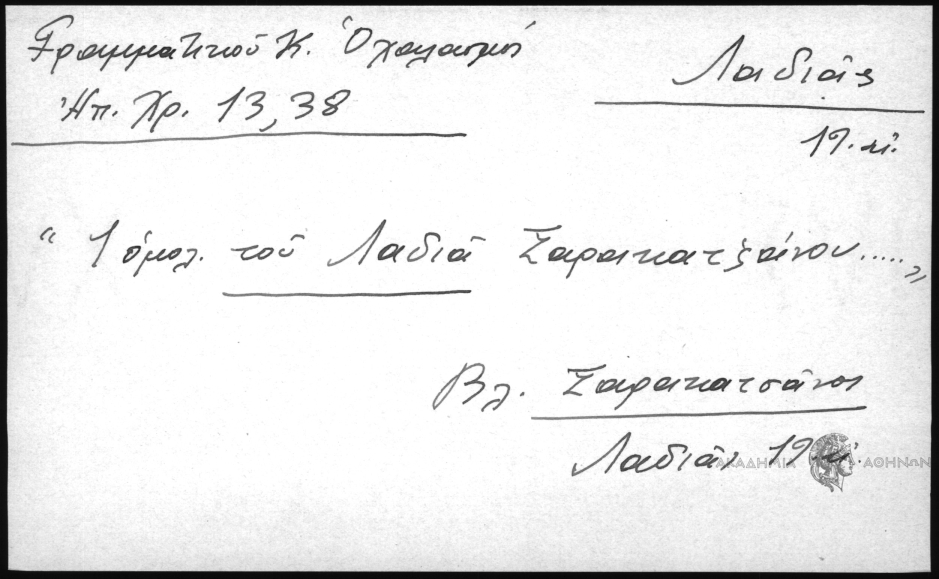 Γραμματικοῦ Κ. Ὀχαλασμοί
Ἠπ. Χρ. 13, 38
Λαδιᾶς
19. αἰ.
“ 1 ὁμολ. τοῦ Λαδιᾶ Σαρακατζάνου.....„
Βλ. Σαρακατσάνοι
Λαδιᾶς 19. αἰ.
ΑΚΑΔΗΜΙΑ ΑΘΗΝΩΝ